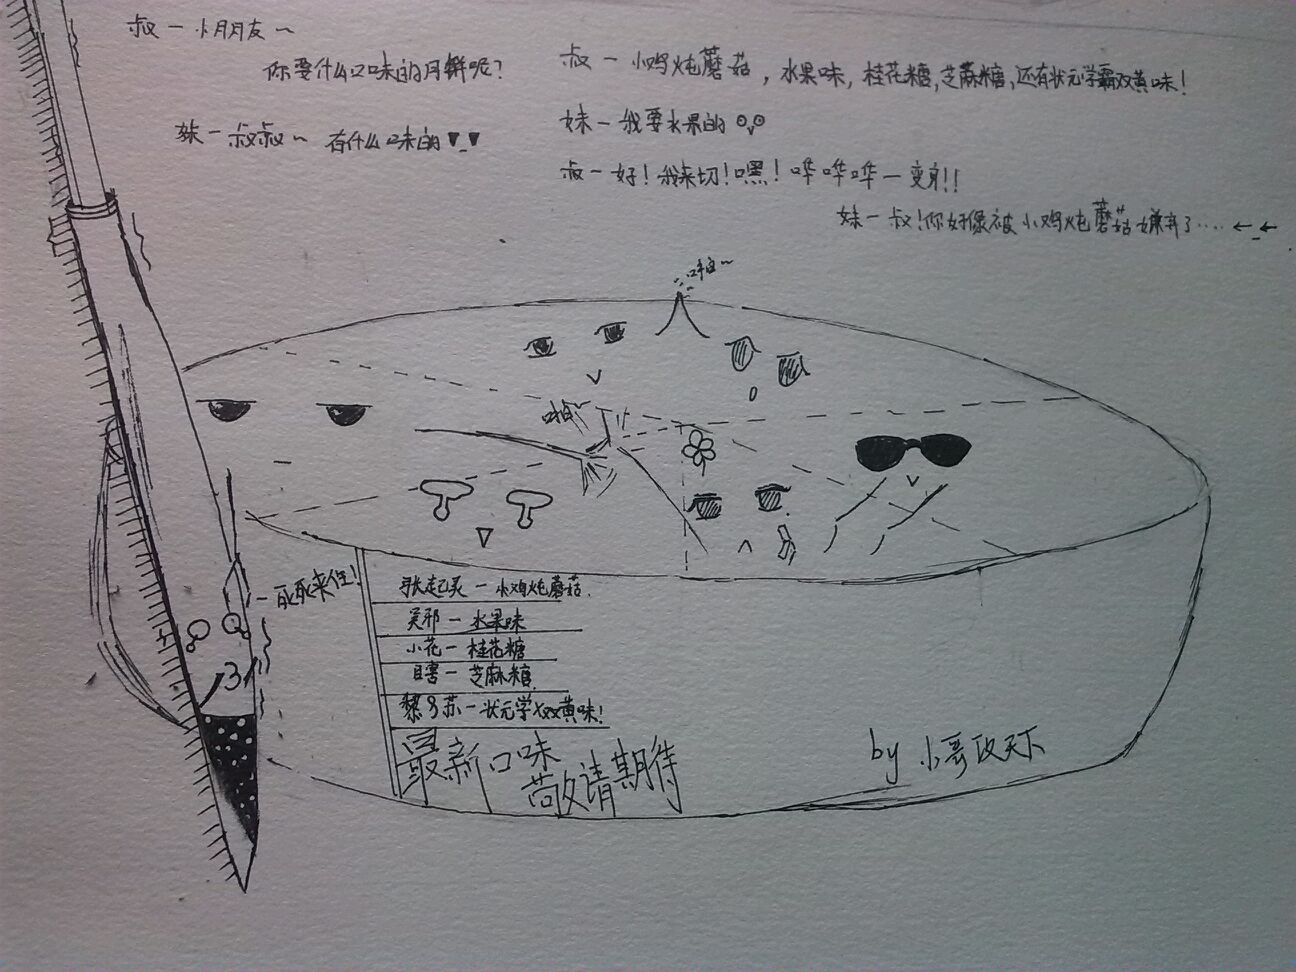 叔一小朋友~
你要什么口味的月饼呢?
妹一叔叔~ 有什么口味的
叔一小鸡炖蘑菇,水果味,桂花糖,芝麻糖,还有状元学霸双黄味!
妹一我要水果的
叔一好!我来切!嘿!哗哗哗一变身!!
妹一叔!你好像被小鸡炖蘑菇嫌弃了····
啪~
啪~
一死死来住!
张起灵一小鸡炖蘑菇.
吴邪一水果味
小花一桂花糖
瞎一芝麻糖
黎苏一状元学双黄味!
最新口味
敬请期待
by 小哥天下